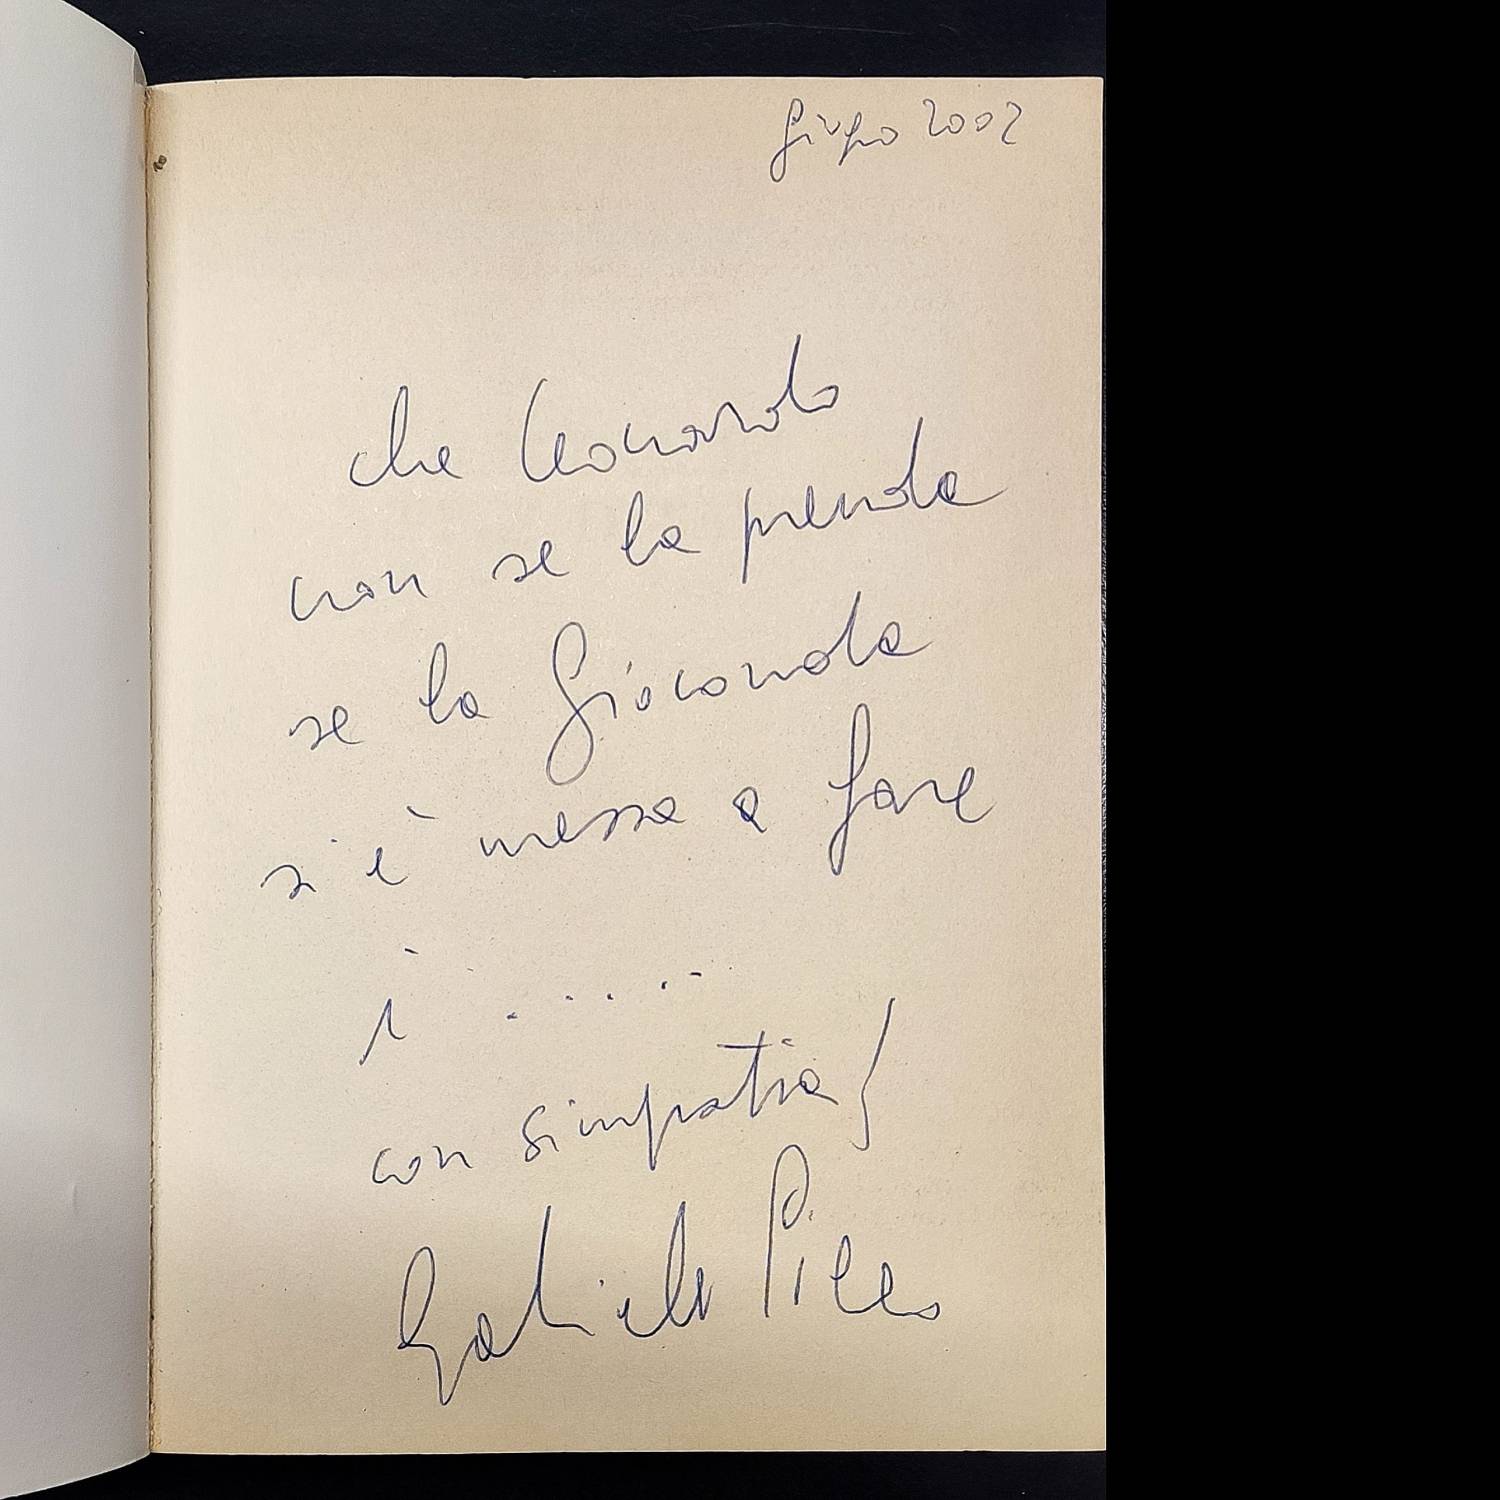 giugno 2002
che Leonardo
non se la prenda
se la Gioconda
si è messa a fare
i .....
con simpatia!
Gabriele